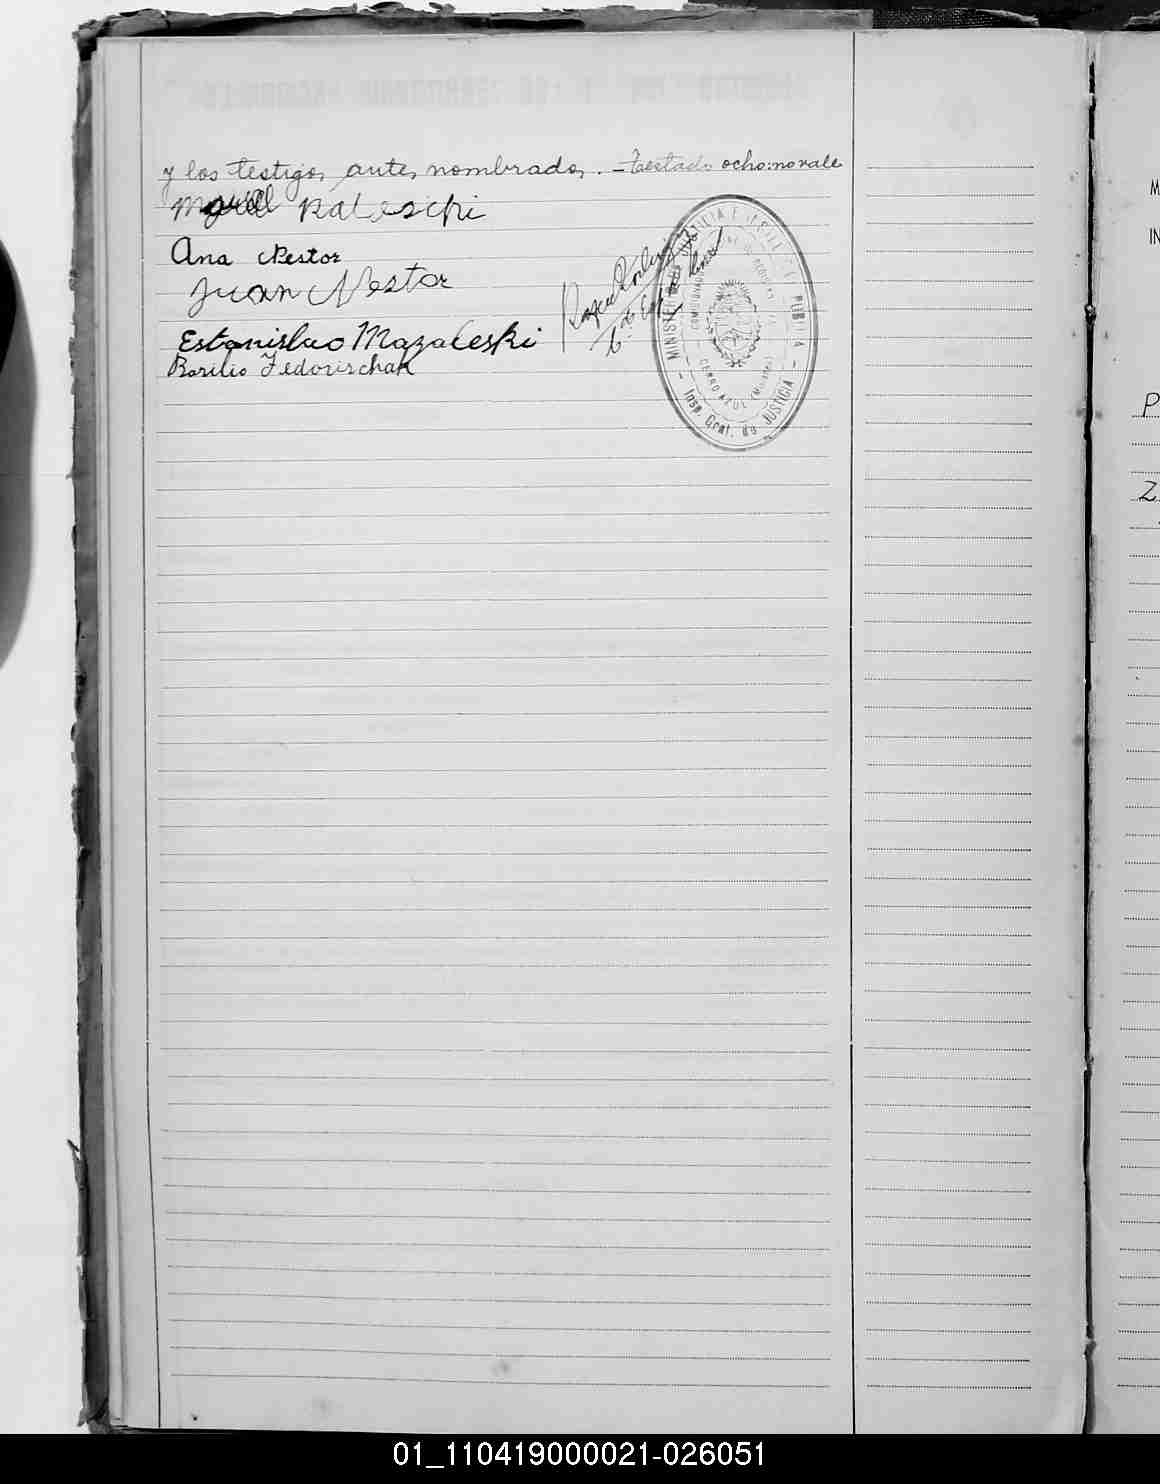 y los testigos antes nombrados. – Testado ocho: no vale
Miguel Raleschi
Ana Nestor
Juan Nestor
Estanislao Mazaleski
Basilio Fedorischak
MINISTERIO DE JUSTICIA E PUBLICA
Insp. Gral. de JUSTICIA
CERRO AZUL (Misiones)
M
IN
P
Z
01_110419000021-026051